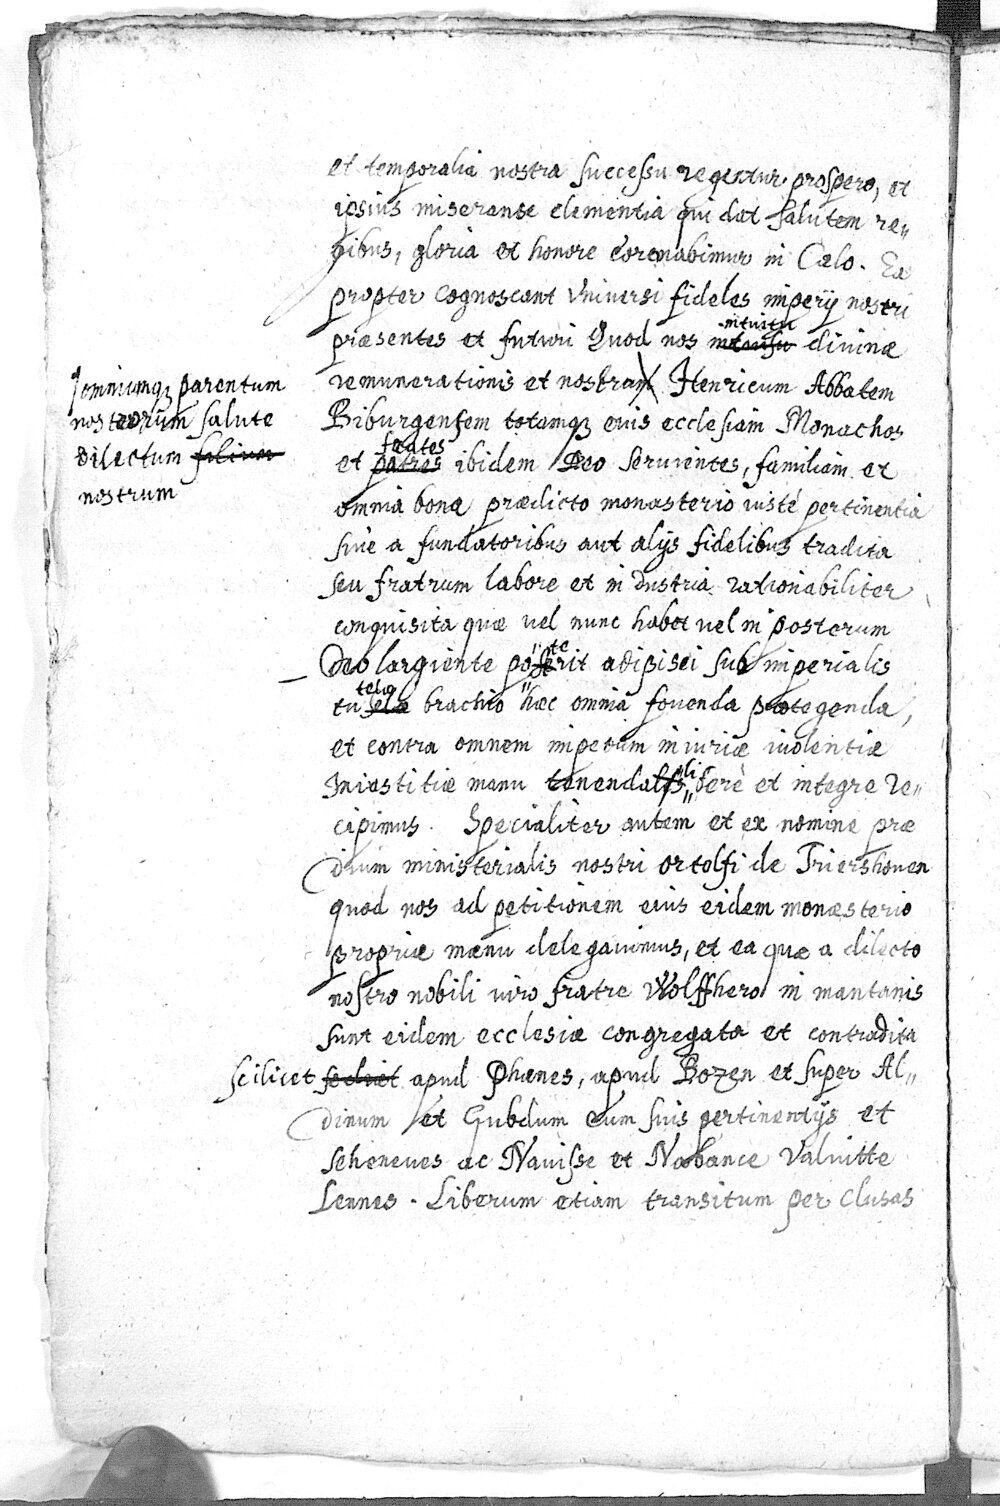 et temporalia nostra successu regentur prospero, et
ipsius miserante clementia qui dat salutem re„
gibus, gloria et honore coronabimur in Cælo. Ea
propter cognoscant Vniversi fideles imperij nostri
intuitu
præsentes et futuri Quod nos divinæ
remunerationis et nostram Henricum Abbatem
omniumq parentum
nostrorum salute
dilectum filium
nostrum
Biburgensem totamq eius ecclesiam Monachos
fratres
et patres ibidem Deo seruientes, familiam et
omnia bona prædicto monasterio iusté pertinentia
siue a fundatoribus aut alijs fidelibus tradita
seu fratrum labore et industria rationabiliter
conquisita quæ vel nunc habet vel in posterum
te
Deo largiente poterit adipisci sub imperialis
tela
tu brachio hæc omnia fouenda protegenda,
et contra omnem impetum iniuriæ violentiæ
Iniustitiæ manu tenenda liberè et integre re„
cipimus. Specialiter autem et ex nomine præ
dium ministerialis nostri ortolfi de Triershouen
quod nos ad petitionem eius eidem monasterio
propriæ manu delegauimus, et ea quæ a dilecto
nostro nobili viro fratre Wolffhero in mantanis
sunt eidem ecclesiæ congregata et contradita
scilicet apud Phænes, apud Bozen et super Al„
dinum et Gubdum cum suis pertinentijs et
scheneues ac Nauisse et Nabance Valuitte
Lennes. Liberum etiam transitum per clusas